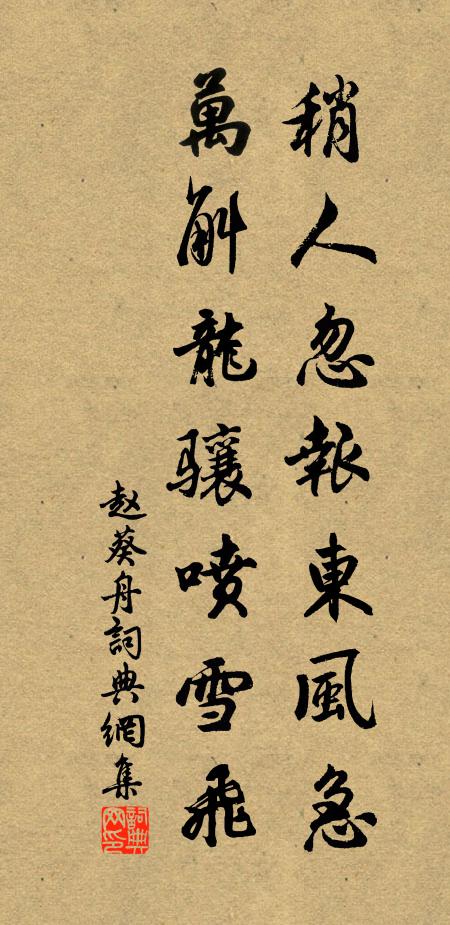 稍人忽報東風急
萬斛龍驤噴雪飛
赵葵舟詞典網集
詞典网印